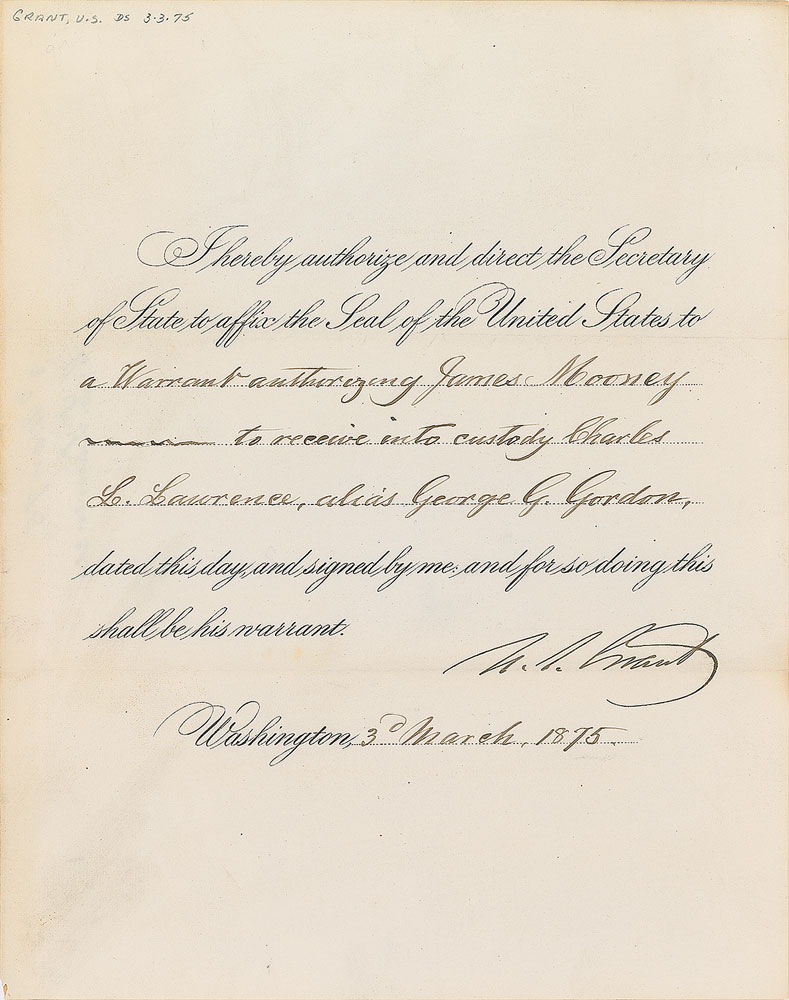 GRANT, U.S. DS 3·3·75
I hereby authorize and direct the Secretary
of State to affix the Seal of the United States to
a Warrant authorizing James Mooney
to receive into custody Charles
L. Lawrence, alias George G. Gordon,
dated this day, and signed by me: and for so doing this
shall be his warrant.
U. S. Grant
Washington, 3d March, 1875.